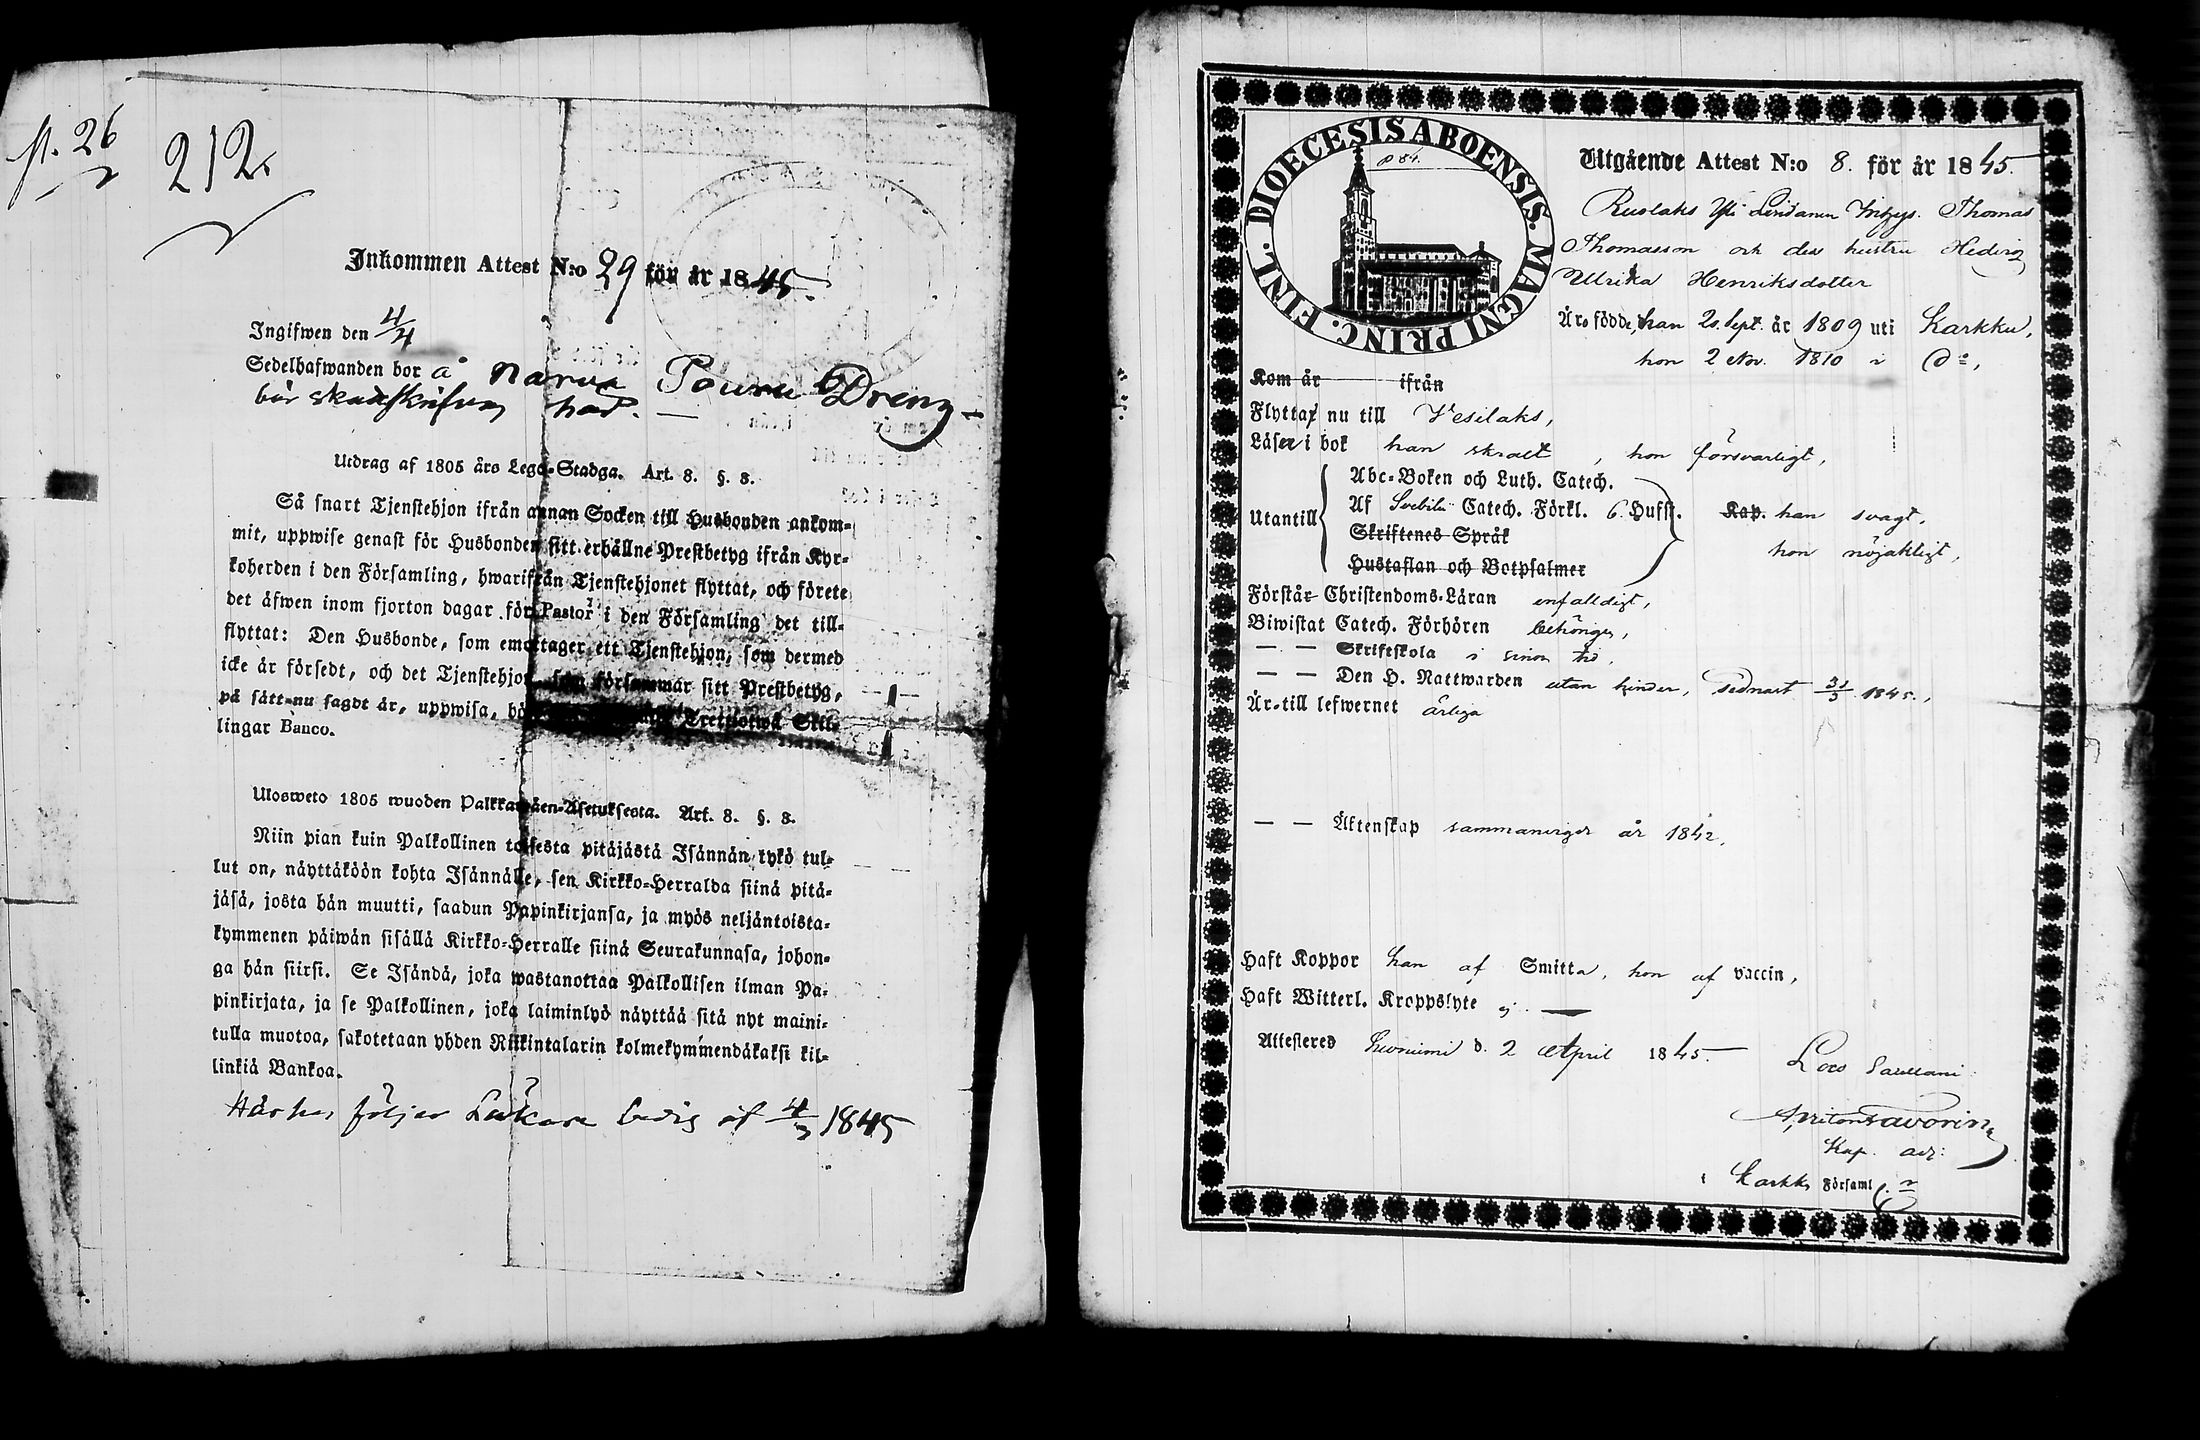 212.
Inkommen Attest N:o 29 för år 1845.
Ingifwen den 4/4
Sedelhafwanden bor å Narva Pouru Dreng
bör skattskrifvas här.
Utdrag af 1805 års Lego-Stadga. Art. 8. §. 8.
Så snart Tjenstehjon ifrån annan Socken till Husbonden ankom-
mit, uppwise genast för Husbonden sitt erhållne Prestbetyg ifrån Kyr-
koherden i den Församling, hwarifrån Tjenstehjonet flyttat, och förete
det äfwen inom fjorton dagar för Pastor i den Församling det till-
flyttat: Den Husbonde, som emottager ett Tjenstehjon, som dermed
icke är försedt, och det Tjenstehjon, som försummar sitt Prestbetyg,
på sätt nu sagdt är, uppwisa, Tretiotwå Skil-
lingar Banco.
Ulosweto 1805 wuoden Palkkawäen-Asetuksesta. Art. 8. §. 8.
Niin pian kuin Palkollinen toisesta pitäjästä Isännän tykö tul-
lut on, näyttäköön kohta Isännälle, sen Kirkko-Herralda siinä pitä-
jäsä, josta hän muutti, saadun Papinkirjansa, ja myös neljäntoista-
kymmenen päiwän sisällä Kirkko-Herralle siinä Seurakunnasa, johon-
ga hän siirsi. Se Isändä, joka wastanottaa Palkollisen ilman Pa-
pinkirjata, ja se Palkollinen, joka laiminlyö näyttää sitä nyt maini-
tulla muotoa, sakotetaan yhden Riikintalarin kolmekymmendäkaksi kil-
linkiä Bankoa.
följer Läkare bevis af 1845
DIOECESIS ABOENSIS. MAGNI PRINC. FINL.
p 84.
Utgående Attest N:o 8. för år 1845.
Thomas
Thomasson och dess hustru Hedvig
Ulrika Henriksdotter
Äro födde, han 20 Sept. år 1809 uti Karkku,
hon 2 Nov. 1810 i do,
Kom år ifrån
Flytta nu till Vesilaks,
Läser i bok han skralt, hon försvarligt,
Utantill
Abc-Boken och Luth. Catech.
Af Svebilii Catech. Förkl. 6. Hufst. Kap. han svagt,
Skriftenes Språk
hon nöjaktigt,
Hustaflan och Botpsalmer
Förstår Christendoms-Läran enfaldigt,
Biwistat Catech. Förhören behörigen,
— — Skriftskola i sinom tid,
— — Den H. Nattwarden utan hinder, sednast 1845,
Är till lefwernet ärliga
— — Äktenskap sammanvigde år 1842,
Haft Koppor han af Smitta, hon af vaccin,
Haft Witterl. Kroppslyte ej. —
Attesteres d. 2 April 1845.
Loco Pastoris
Kap. adj.
i Karkku Församl.